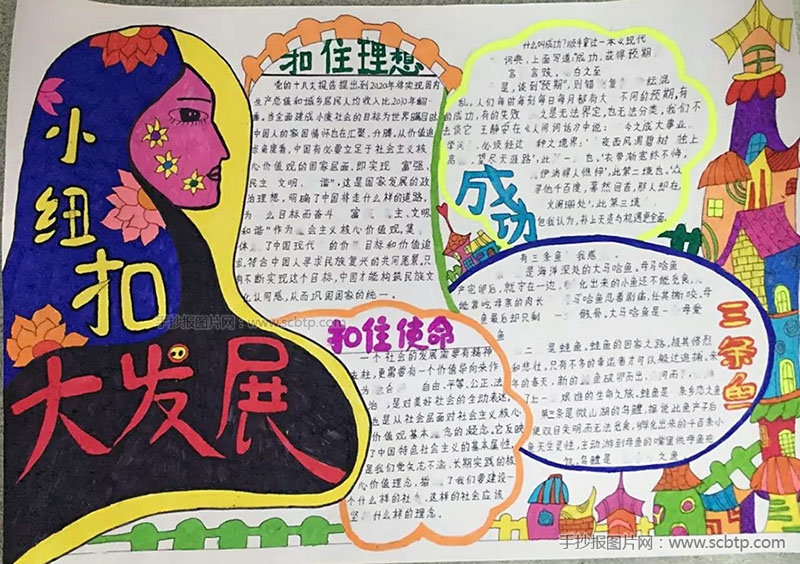 小纽
扣
大发展
扣住理想
党的十八大报告提出到2020年将实现国内
生产总值和城乡居民人均收入比2010年翻一
番。当全面建成小康社会的目标为世界瞩目时
中国人的家国情怀也在汇聚、升腾。从价值追
求角度看，中国有必要立足于社会主义核
心价值观的国家层面，即实现 富强、
民主 文明、 谐"，这是国家发展的政
治理想，明确了中国将走什么样的道路，
为 么目标而奋斗 富 主、文明、
和谐"作为 会主义核心价值观，集
体 了中国现代 的价 目标和价值追
求，符合中国人寻求民族复兴的共同愿景，只
有不断实现这个目标，中国才能构筑民族文
化认同感，从而巩固国家的统一。
扣住使命
一个社会的发展需要有精神
支柱，更需要有一个价值导向来作
为 自由、平等、公正、法
治 ，是对美好社会的生动表述，
也是从社会层面对社会主义核心
价值观基本 念的凝念。它反映
了中国特色社会主义的基本属性，
是我们党矢志不渝、长期实践的核
心价值理念，揭 了我们要建设一
个什么样的社 、这样的社会应该
坚 什么样的理念。
成功
什么叫成功？顺手拿过一本 现代
词典，上面写道："成功，获得预期
言 言贱， 白之至
是，谈到"预期"，则错 纭混
乱，人们每时每刻每日每月都有大 不同的预期，有
的成功，有的失败 之是无法界定，也无法分类，我们不
去谈它 王静安在《人间词话》中说： 今之成大事业、
学问 ，必须经过 种之境界： 夜西风凋碧树 独上
高 ，望尽天涯路'，此 也。'衣带渐宽终不悔，
伊消得人憔悴'，此第二境也。'众
寻他千百度，蓦然回首，那人却在，
火阑珊处'，此第三境
但我认为，补上天资与机遇更全面
三条鱼
有三条鱼 我感
是海洋深处的大马哈鱼。母马哈鱼
产完卵后，就守在一边， 化出来的小鱼还不能觅食，
能靠吃母亲的肉长 马哈鱼忍着剧痛，任其撕咬，母
鱼最后却只剩 骸骨。大马哈鱼是一 母爱
鱼
二 是鲑鱼。鲑鱼的回家之路，极其惨烈
和悲壮，只有不多的幸运者才可以躲过追捕。来
年的春天，新的 鱼破卵而出，
了上一 艰难的生命之旅。鲑鱼是 条乡恋之鱼
第 条是微山湖的乌鳢。据说此鱼产子后
便双目失明而无法觅食，孵化出来的千百条小
鱼天生灵性，主动 游到母鱼的嘴里供母鱼充
饥。乌鳢是 之鱼
手抄报图片网：www.scbtp.com
手抄报图片网：www.scbtp.com